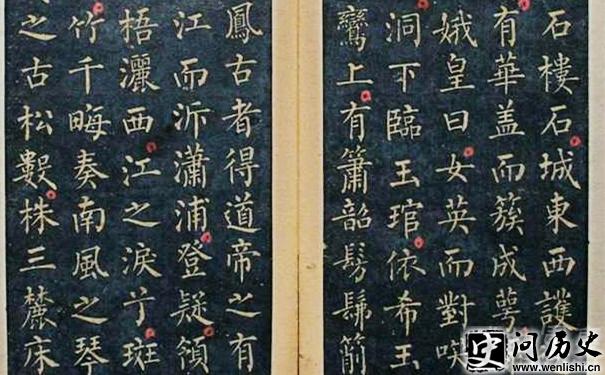 石樓石城東西護
有華盖而簇成蕚
娥皇曰女英而對
洞下臨玉琯依希玉
鸞上有簫韶髣髴箭
鳳古者得道帝之有
江而泝瀟浦登疑領
梧灑西江之淚兮斑
竹千畮奏南風之琴
之古松數株三麓床
问历史
www.wenlishi.cn